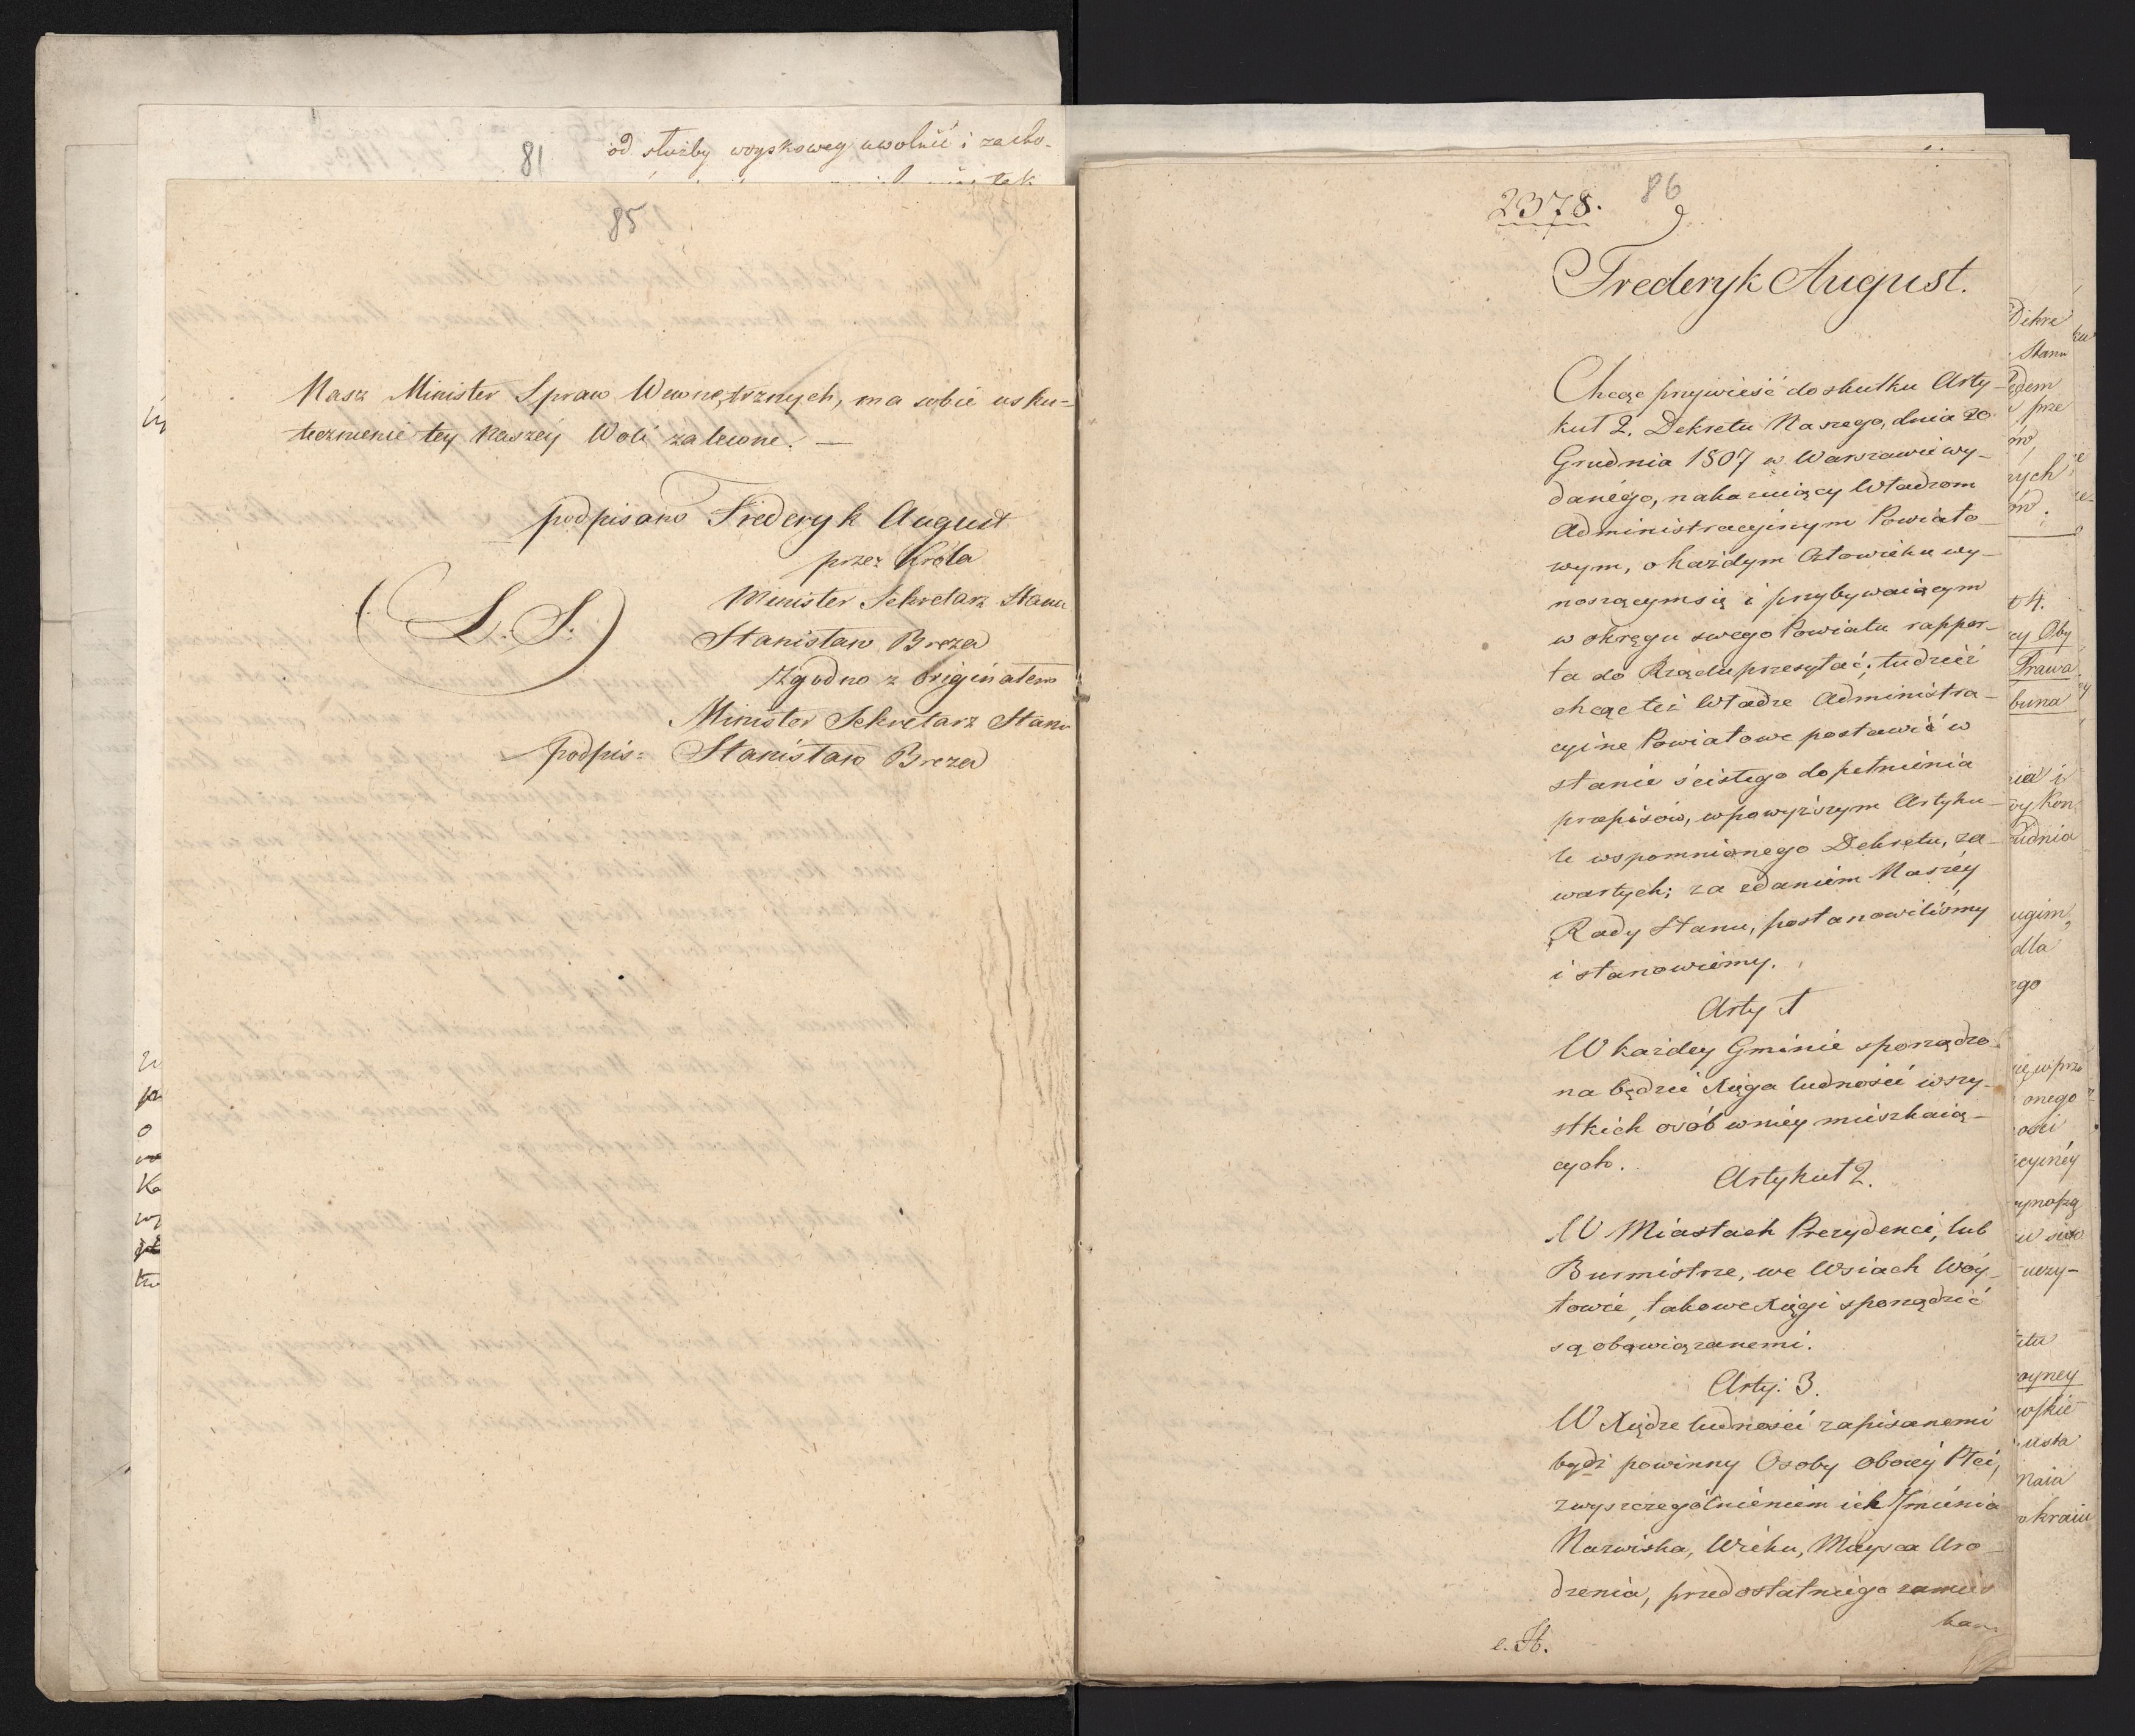 81
od służby woyskowey uwolnić i zacho-
85
Nasz Minister Spraw Wewnętrznych, ma sobie usku=
tecznienie tey Naszey Woli zalecone. —
podpisano Frederyk August
przez Króla
Minister Sekretarz Stanu
(L. S.)
Stanisław Breza
Zgodno z Originałem
Minister Sekretarz Stanu
podpis: Stanisław Breza
2378.
86
Frederyk August.
Chcąc przywieść do skutku Arty-
kuł 2. Dekretu Naszego, dnia 20
Grudnia 1807 w Warszawie wy-
danego, nakazuiący Władzom
Administracyinym Powiato-
wym, o każdym Człowieku wy-
noszącym się i przybywaiącym
w okręgu swego Powiatu rappor-
ta do Rządu przesyłać; tudzież
chcąc też Władze Administra-
cyine Powiatowe postawić w
stanie ścisłego dopełnienia
przepisów, w powyższym Artyku-
le wspomnionego Dekretu, za-
wartych; za zdaniem Naszéy
Rady Stanu, postanowiliśmy
i stanowiemy.
Arty 1
W każdey Gminie sporządzo-
na będzie Xięga ludności wszy-
stkich osób w niéy mieszkaią-
cych.
Artykuł 2.
W Miastach Prezydenci, lub
Burmistrze, we Wsiach Wóy-
towie, takowe Xięgi sporządzić
są obowiązanemi.
Arty: 3.
W Xiędze ludności zapisanemi
bydź powinny Osoby oboiéy Płci,
z wyszczególnieniem ich Imienia
Nazwiska, Wieku, Mieysca Uro-
dzenia, przedostatniego zamiesz
kan